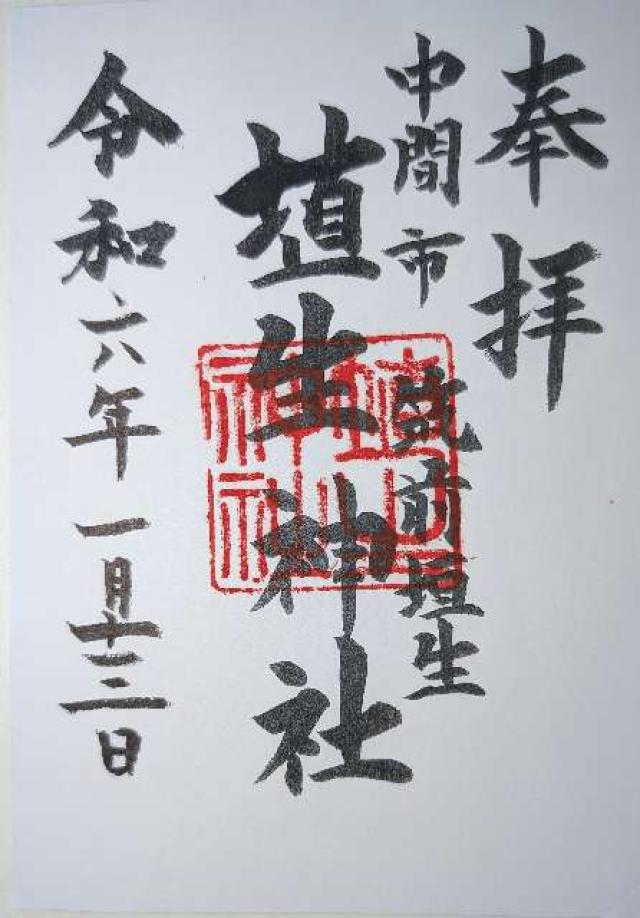 奉拝
中間市 筑前垣生
埴生神社
令和六年一月十三日